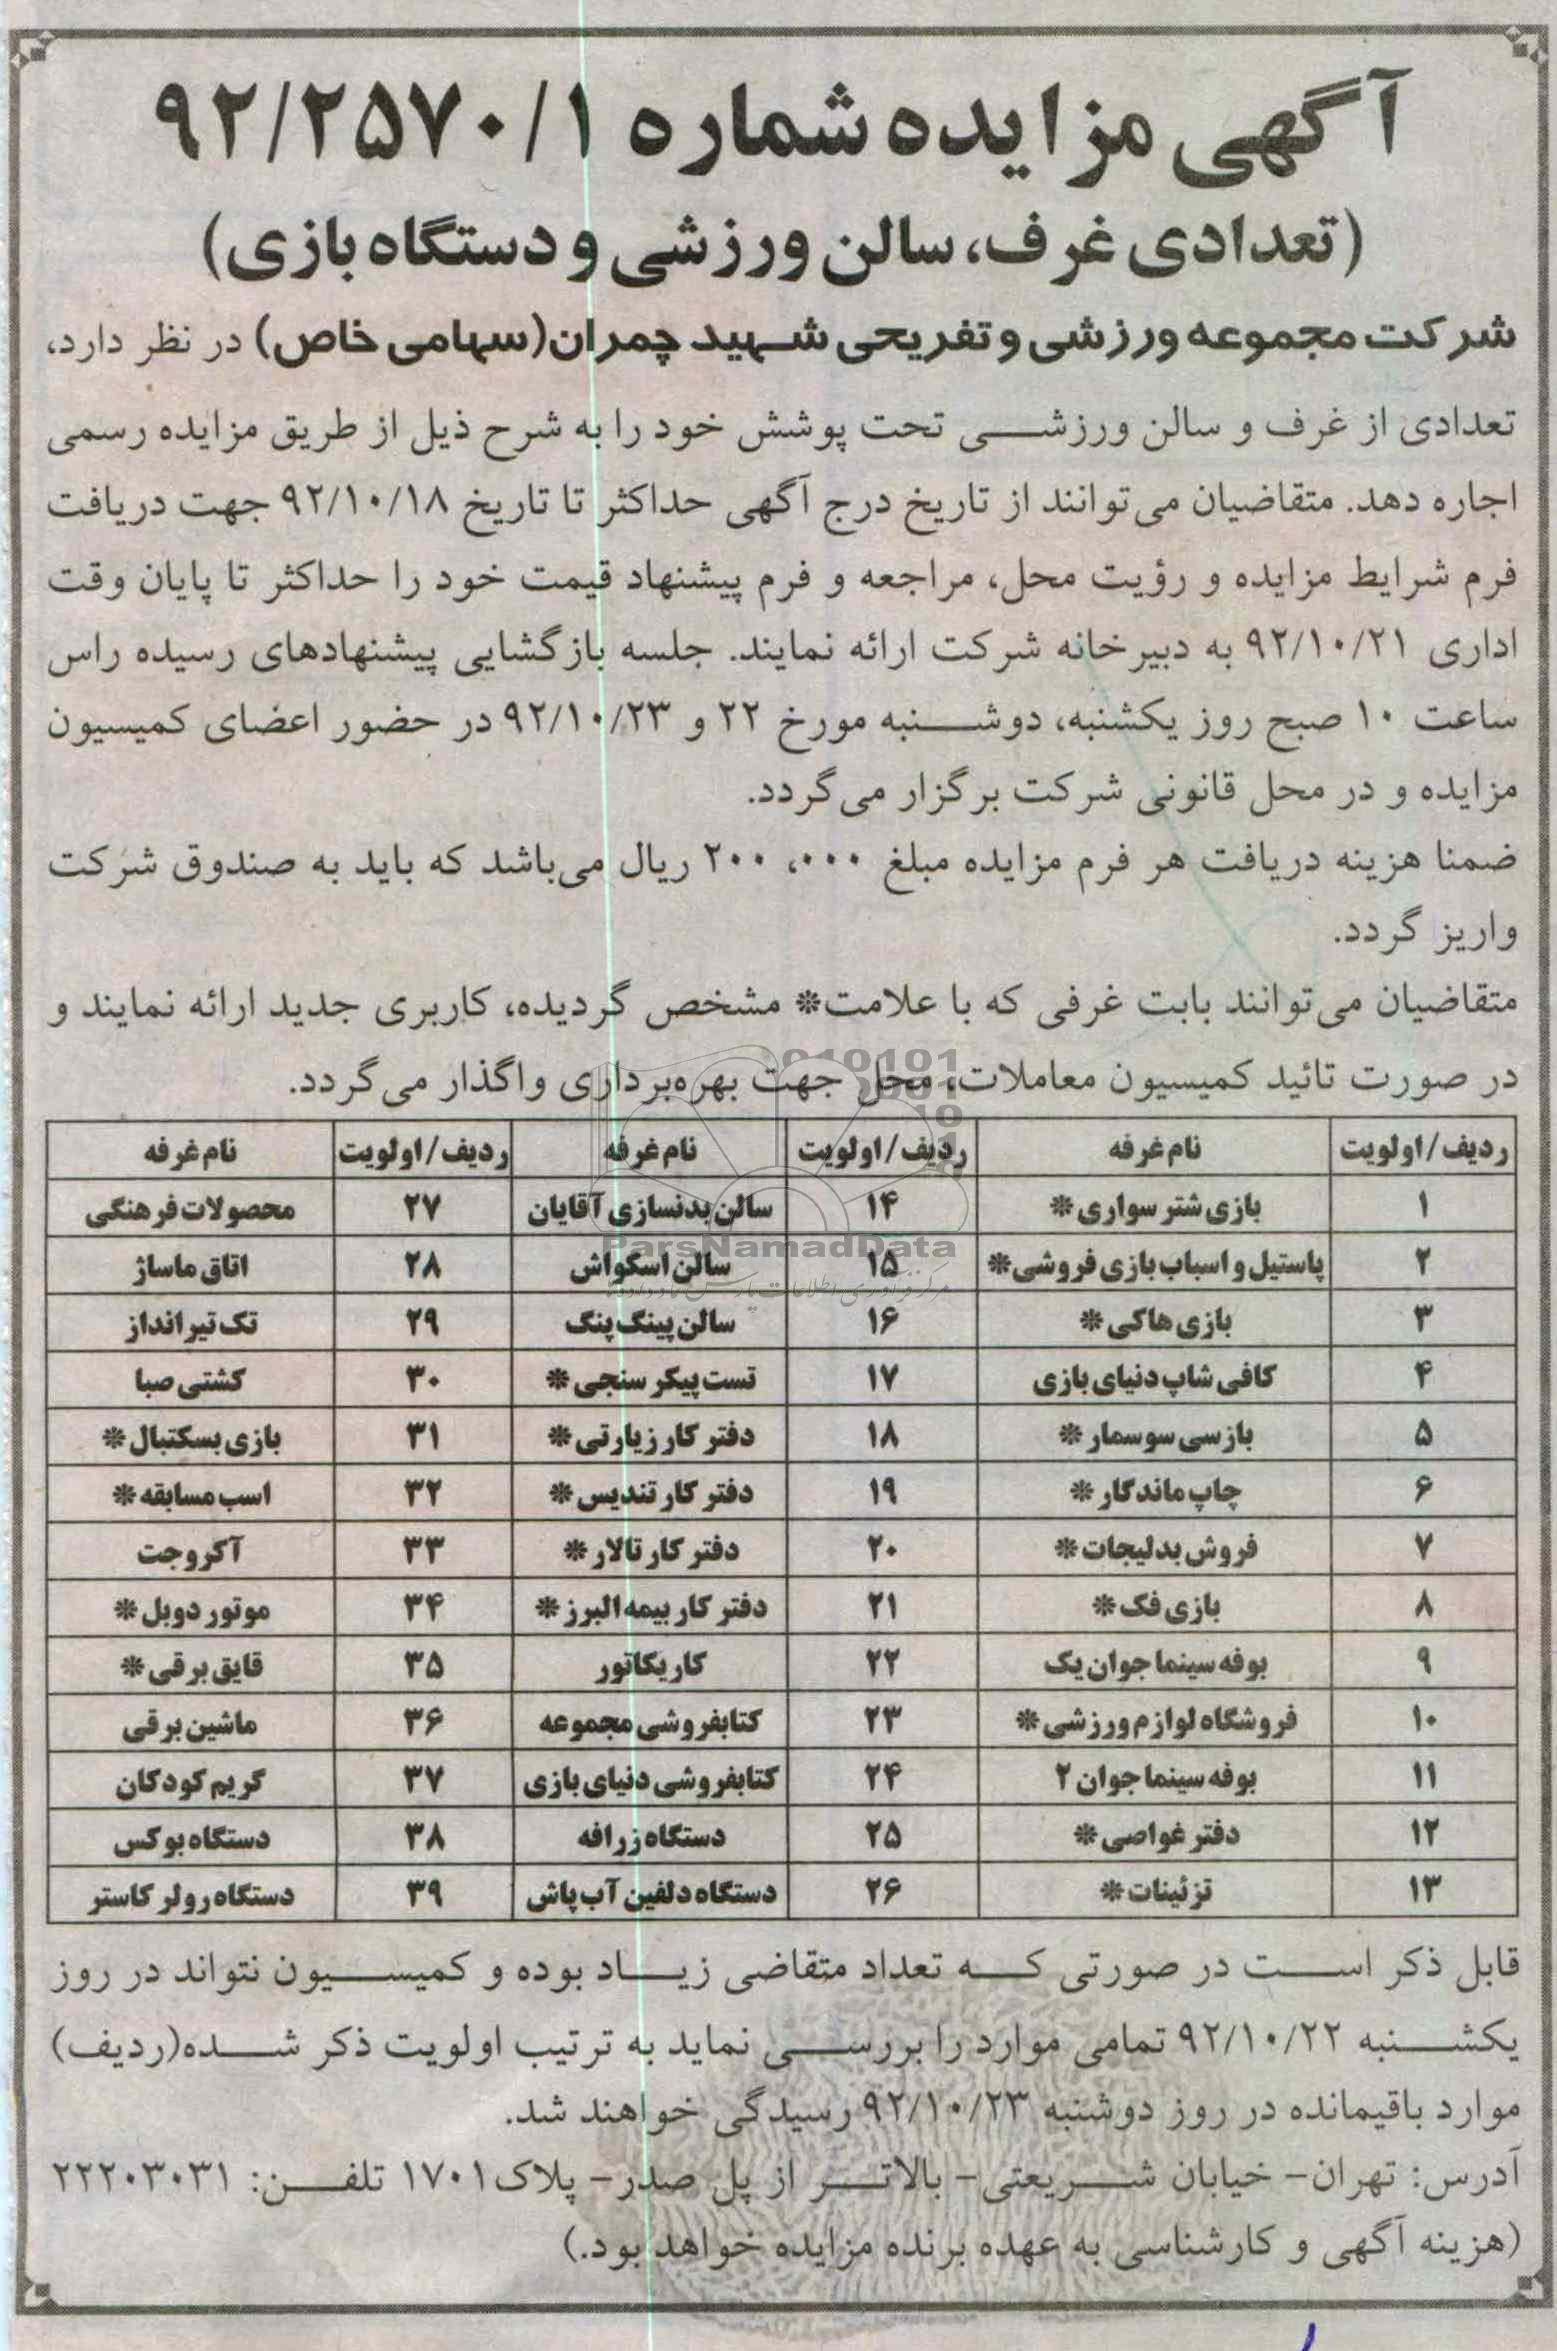 آگهی مزایده شماره ۹۲/۲۵۷۰/۱
(تعدادی غرف، سالن ورزشی و دستگاه بازی)
شرکت مجموعه ورزشی و تفریحی شهید چمران (سهامی خاص) در نظر دارد،
تعدادی از غرف و سالن ورزشی تحت پوشش خود را به شرح ذیل از طریق مزایده رسمی
اجاره دهد. متقاضیان می‌توانند از تاریخ درج آگهی حداکثر تا تاریخ ۹۲/۱۰/۱۸ جهت دریافت
فرم شرایط مزایده و رؤیت محل، مراجعه و فرم پیشنهاد قیمت خود را حداکثر تا پایان وقت
اداری ۹۲/۱۰/۲۱ به دبیرخانه شرکت ارائه نمایند. جلسه بازگشایی پیشنهادهای رسیده راس
ساعت ۱۰ صبح روز یکشنبه، دوشنبه مورخ ۲۲ و ۹۲/۱۰/۲۳ در حضور اعضای کمیسیون
مزایده و در محل قانونی شرکت برگزار می‌گردد.
ضمنا هزینه دریافت هر فرم مزایده مبلغ ۲۰۰،۰۰۰ ریال می‌باشد که باید به صندوق شرکت
واریز گردد.
متقاضیان می‌توانند بابت غرفی که با علامت* مشخص گردیده، کاربری جدید ارائه نمایند و
در صورت تائید کمیسیون معاملات، محل جهت بهره‌برداری واگذار می‌گردد.
ردیف/اولویت نام غرفه ردیف/اولویت نام غرفه ردیف/اولویت نام غرفه
۱ بازی شتر سواری* ۱۴ سالن بدنسازی آقایان ۲۷ محصولات فرهنگی
۲ پاستیل و اسباب بازی فروشی* ۱۵ سالن اسکواش ۲۸ اتاق ماساژ
۳ بازی هاکی* ۱۶ سالن پینگ پنگ ۲۹ تک تیرانداز
۴ کافی شاپ دنیای بازی ۱۷ تست پیکر سنجی* ۳۰ کشتی صبا
۵ بازسی سوسمار* ۱۸ دفتر کار زیارتی* ۳۱ بازی بسکتبال*
۶ چاپ ماندگار* ۱۹ دفتر کار تندیس* ۳۲ اسب مسابقه*
۷ فروش بدلیجات* ۲۰ دفتر کار تالار* ۳۳ آکروجت
۸ بازی فک* ۲۱ دفتر کار بیمه البرز* ۳۴ موتور دوبل*
۹ بوفه سینما جوان یک ۲۲ کاریکاتور ۳۵ قایق برقی*
۱۰ فروشگاه لوازم ورزشی* ۲۳ کتابفروشی مجموعه ۳۶ ماشین برقی
۱۱ بوفه سینما جوان ۲ ۲۴ کتابفروشی دنیای بازی ۳۷ گریم کودکان
۱۲ دفتر غواصی* ۲۵ دستگاه زرافه ۳۸ دستگاه بوکس
۱۳ تزئینات* ۲۶ دستگاه دلفین آب پاش ۳۹ دستگاه رولر کاستر
قابل ذکر است در صورتی که تعداد متقاضی زیاد بوده و کمیسیون نتواند در روز
یکشنبه ۹۲/۱۰/۲۲ تمامی موارد را بررسی نماید به ترتیب اولویت ذکر شده(ردیف)
موارد باقیمانده در روز دوشنبه ۹۲/۱۰/۲۳ رسیدگی خواهند شد.
آدرس: تهران- خیابان شریعتی- بالاتر از پل صدر- پلاک۱۷۰۱ تلفن: ۲۲۲۰۳۰۳۱
(هزینه آگهی و کارشناسی به عهده برنده مزایده خواهد بود.)
ParsNamadData